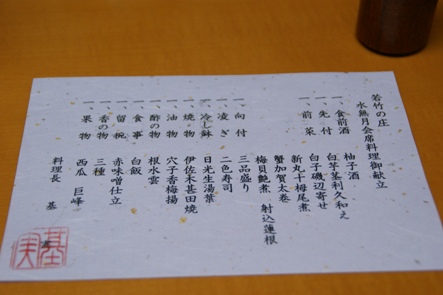 若竹の庄
水無月会席料理御献立
一、食前酒 柚子酒
一、先付 白芋茎利久和え
白子磯辺寄せ
一、前菜 新丸十梅尾煮
蟹加賀太巻
梅貝艶煮 射込蓮根
一、向付 三品盛り
一、凌ぎ 二色寿司
一、冷し鉢 日光生湯葉
一、焼物 伊佐木甚田焼
一、油物 穴子香梅揚
一、酢の物 根水雲
一、食事 白飯
一、留椀 赤味噌仕立
一、香の物 三種
一、果物 西瓜 巨峰
料理長 基